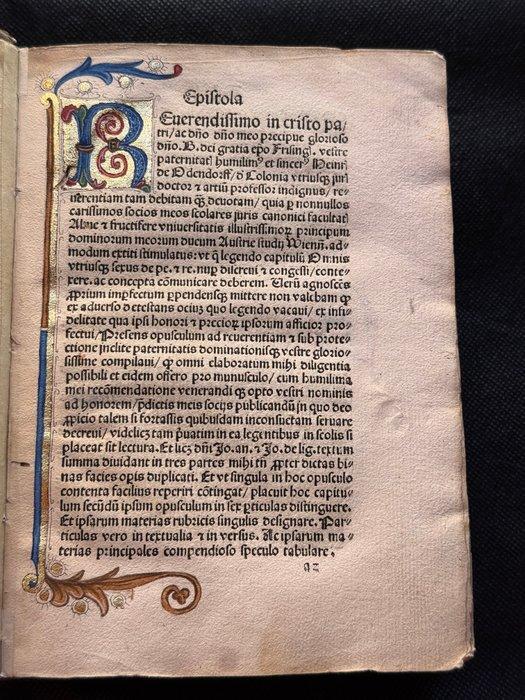 Epistola
REuerendissimo in cristo pa/
tri/ac dño dño meo precipue glorioso
dño. B. dei gratia epo Frising. vestre
paternitati humilimꝰ et sincerꝰ Heinr
de Odendorff/ d Colonia vtriusqꝫ iuri
doctor ⁊ artiū professor indignus/ re/
uerentiam tam debitam qꝫ deuotam/ quia p nonnullos
carissimos socios meos scolares iuris canonici facultatꝭ
Alme et fructifere vniuersitatis illustrissimoꝝ principum
dominorum meorum ducum Austrie studij Wienñ. ad/
modum extiti stimulatus: vt q̄ legendo capitulū Omnis
vtriusqꝫ sexus de pe. ⁊ re. nup disserui ⁊ congessi/ conte/
xere. ac concepta cōmunicare deberem. Uerū agnoscēs
ꝓprium imperfectum ꝑpendensqꝫ mittere non valebam ꝙ
ex aduerso detestans ociuꝫ quo legendo vacaui/ ex infi/
delitate qua ipsi honori ⁊ precioꝝ ipsorum afficior pro/
fectui/ Presens opusculum ad reuerentiam ⁊ sub prote/
ctione inclite paternitatis dominationisqꝫ vestre glorio/
sissime compilaui/ ꝙ omni elaboratum mihi diligentia
possibili et eidem offero pro munusculo/ cum humilima
mei recōmendatione venerandi qꝫ opto vestri nominis
ad honorem/ p̄dictis meis socijs publicandū in quo deo
ꝓpicio talem si fortassis quibusdam inconsuetam seruare
decreui/ videlicꝫ tam p̄uatim in ea legentibus in scolis si
placeat sit lectura. Et licꝫ dñi Jo. an. ⁊ Jo. de lig. textum
summa diuidant in tres partes mihi tñ ꝓpter dictas bi/
nas facies opꝰ duplicati. Et vt singula in hoc opusculo
contenta facilius reperiri cōtingat/ placuit hoc capitu/
lum secūdū ipsum opusculum in sex ꝑticulas distinguere.
Et ipsarum materias rubricis singulis designare. Par/
ticulas vero in textualia ⁊ in versus. Ac ipsarum ma/
terias principales compendioso speculo tabulare.
a2